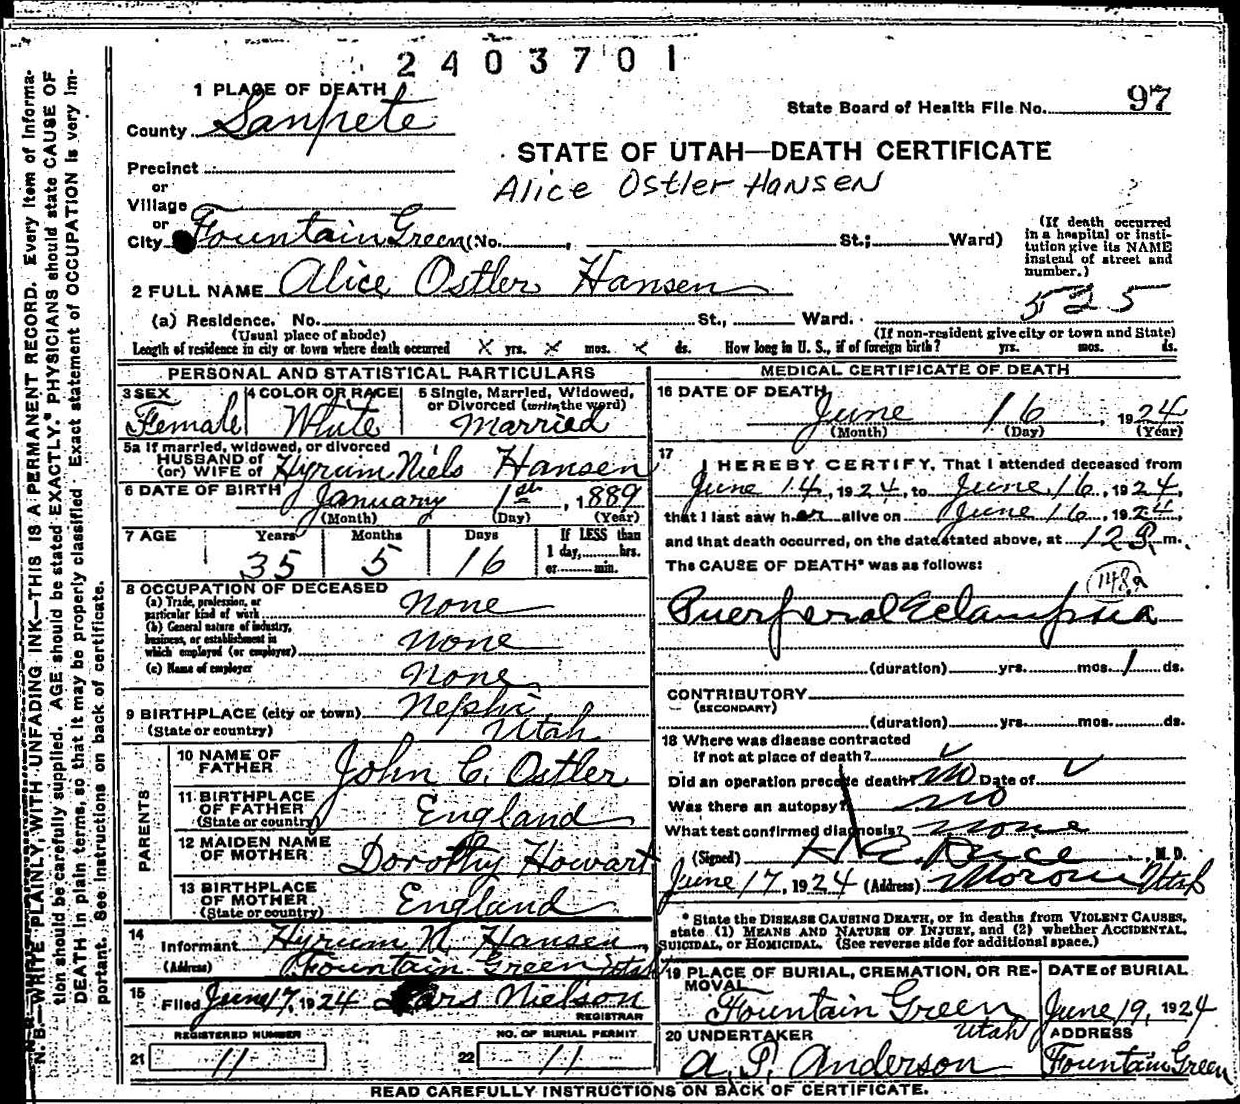 2403701
1 PLACE OF DEATH
State Board of Health File No. 97
County Sanpete
STATE OF UTAH—DEATH CERTIFICATE
Precinct
Alice Ostler Hansen
or
Village
or
City Fountain Green (No. , St.; Ward)
(If death occurred in a hospital or insti-
tution give its NAME
instead of street and
number.)
2 FULL NAME Alice Ostler Hansen
525
(a) Residence. No. St., Ward.
(Usual place of abode) (If non-resident give city or town and State)
Length of residence in city or town where death occurred X yrs. X mos. X ds. How long in U. S., if of foreign birth? yrs. mos. ds.
PERSONAL AND STATISTICAL PARTICULARS
3 SEX Female
4 COLOR OR RACE White
5 Single, Married, Widowed,
or Divorced (write the word)
Married
5a If married, widowed, or divorced
HUSBAND of
(or) WIFE of Hyrum Niels Hansen
6 DATE OF BIRTH January 1st, 1889
(Month) (Day) (Year)
7 AGE Years Months Days If LESS than
1 day, hrs.
or min.
35 5 16
8 OCCUPATION OF DECEASED
(a) Trade, profession, or
particular kind of work None
(b) General nature of industry,
business, or establishment in
which employed (or employer) None
(c) Name of employer None
9 BIRTHPLACE (city or town) Nephi
(State or country) Utah
PARENTS
10 NAME OF
FATHER John C. Ostler
11 BIRTHPLACE
OF FATHER
(State or country) England
12 MAIDEN NAME
OF MOTHER Dorothy Howart
13 BIRTHPLACE
OF MOTHER
(State or country) England
14 Informant Hyrum N. Hansen
(Address) Fountain Green Utah
15 Filed June 17, 1924 Lars Nielson
REGISTRAR
REGISTERED NUMBER
21 11
NO. OF BURIAL PERMIT
22 11
MEDICAL CERTIFICATE OF DEATH
16 DATE OF DEATH June 16, 1924
(Month) (Day) (Year)
17 I HEREBY CERTIFY, That I attended deceased from
June 14, 1924, to June 16, 1924,
that I last saw her alive on June 16, 1924,
and that death occurred, on the date stated above, at m.
The CAUSE OF DEATH* was as follows:
148a
Puerperal Eclampsia
(duration) yrs. mos. 1 ds.
CONTRIBUTORY
(SECONDARY)
(duration) yrs. mos. ds.
18 Where was disease contracted
if not at place of death?
Did an operation precede death? No Date of
Was there an autopsy? No
What test confirmed diagnosis? None
(Signed) H. E. M. D.
June 17, 1924 (Address) Moroni Utah
* State the DISEASE CAUSING DEATH, or in deaths from VIOLENT CAUSES,
state (1) MEANS AND NATURE OF INJURY, and (2) whether ACCIDENTAL,
SUICIDAL, or HOMICIDAL. (See reverse side for additional space.)
19 PLACE OF BURIAL, CREMATION, OR RE-
MOVAL
Fountain Green
Utah
DATE of BURIAL
June 19, 1924
20 UNDERTAKER
A. P. Anderson
ADDRESS
Fountain Green
READ CAREFULLY INSTRUCTIONS ON BACK OF CERTIFICATE.
N. B.—WRITE PLAINLY, WITH UNFADING INK—THIS IS A PERMANENT RECORD. Every item of informa-
tion should be carefully supplied. AGE should be stated EXACTLY. PHYSICIANS should state CAUSE OF
DEATH in plain terms, so that it may be properly classified. Exact statement of OCCUPATION is very im-
portant. See instructions on back of certificate.